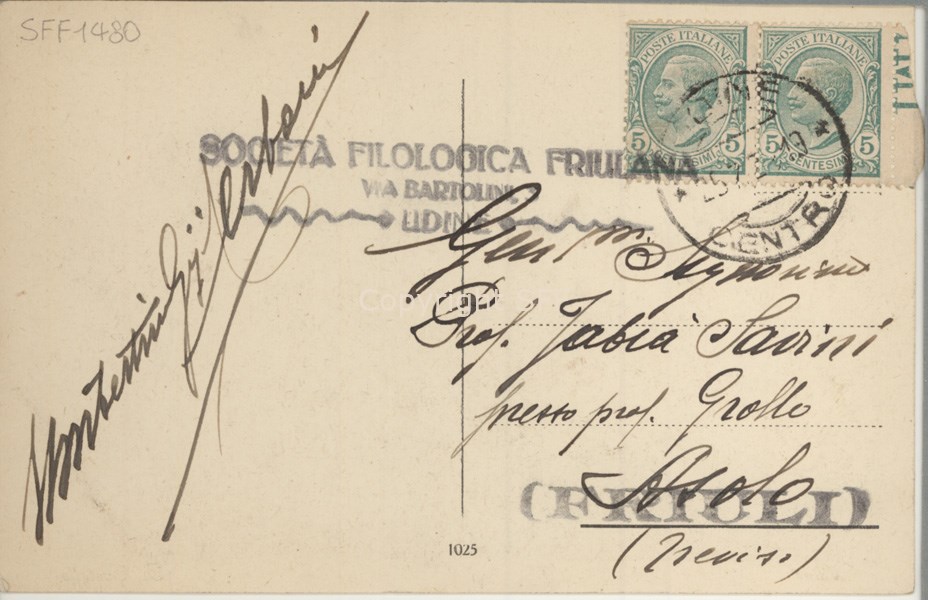 SFF1480
POSTE ITALIANE
5 5
CENTESIMI
POSTE ITALIANE
5 5
CENTESIMI
SOCIETÀ FILOLOGICA FRIULANA
VIA BARTOLINI,
UDINE
UDINE
CENTRO
Urbani
Gent.m. Signorina
Prof. Fabia Savini
presso prof. Grollo
Asolo
(FRIULI)
(Treviso)
Copyright
1025